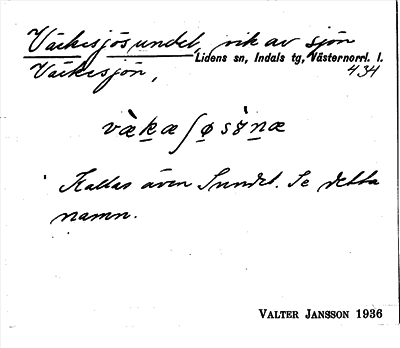 Väckesjösundet, vik av sjön
Lidens sn, Indals tg, Västernorrl. l.
Väckesjön, 434
Kallas även Sundet. Se detta
namn.
VALTER JANSSON 1936